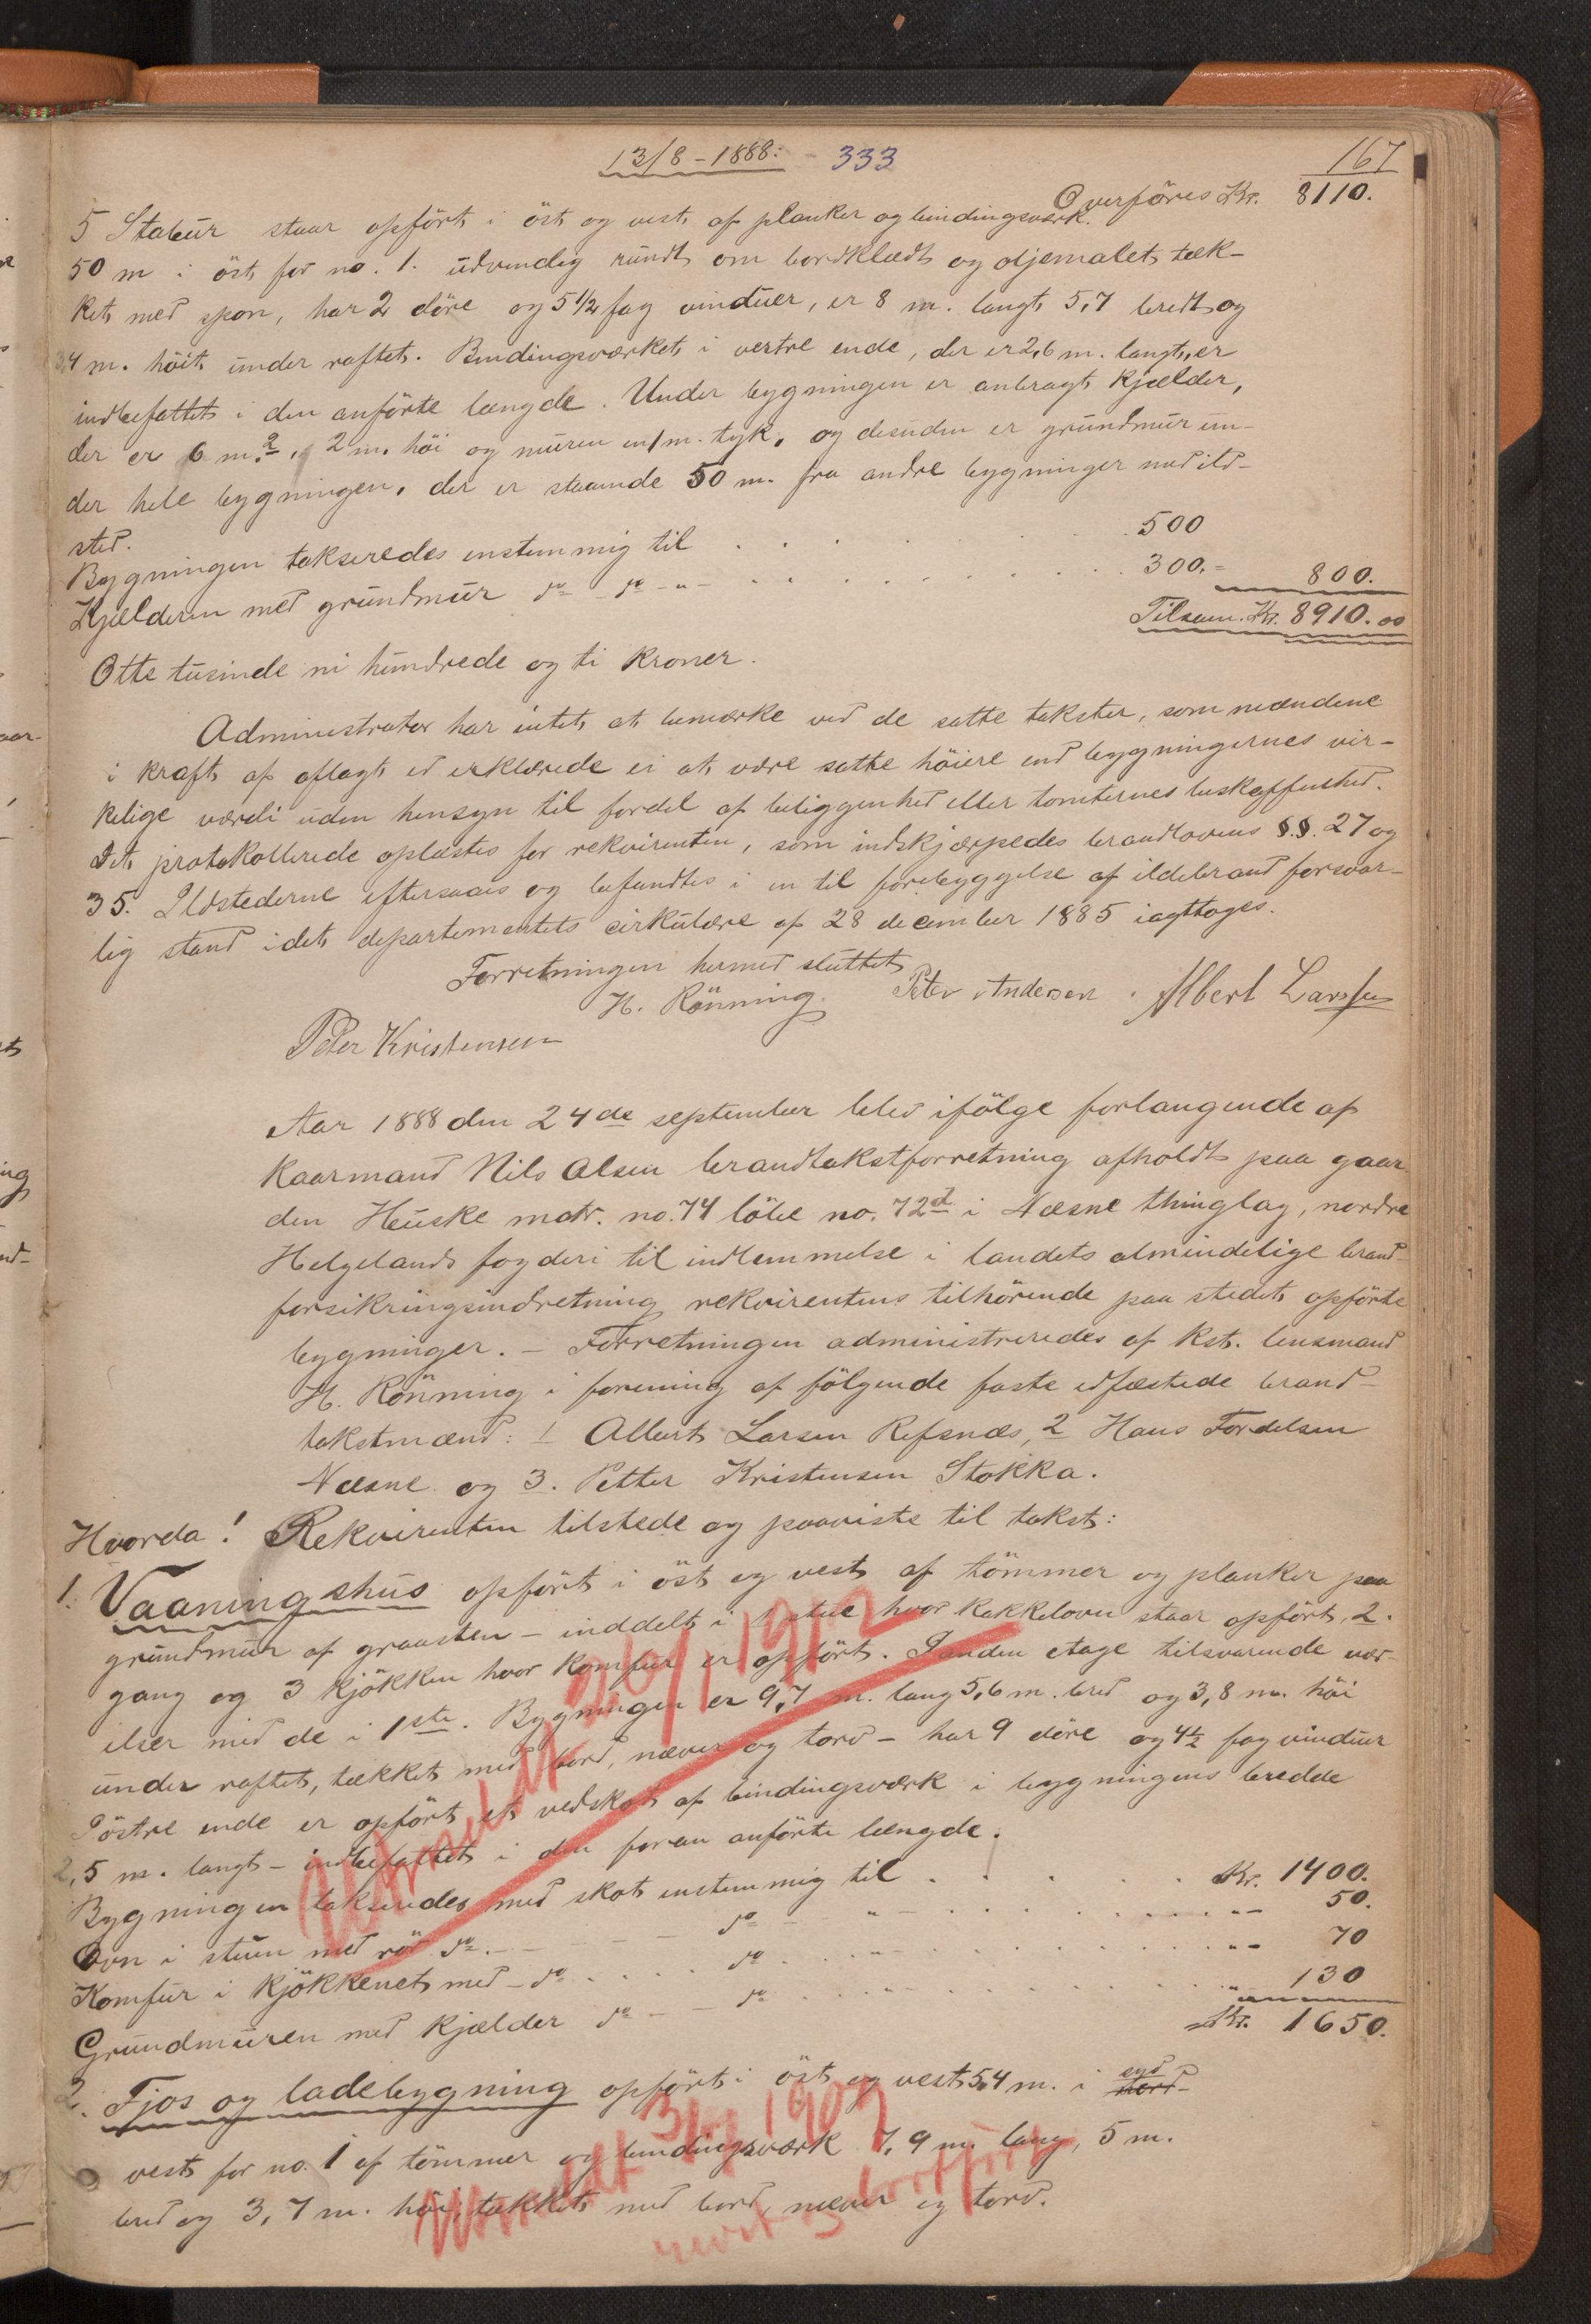 13/8-1888: - 333
167
Overføres Kr. 8110.
5 Stabur staar opført i öst og vest af planker og bindingsværk.
50 m i öst for no. 1. udvendig rundt om bordklædt og oljemalet, tæk-
ket med spon, har 2 döre og 5½ fag vinduer, er 8 m. langt 5,7 bredt og
3,4 m. höit under raftet. Bindingsværket i vestre ende, der er 2,6 m. langt, er
indbefattet i den anförte længde. Under bygningen er anbragt kjælder,
der er 6 m.², 2 m. höi og muren en 1 m. tyk, og desuden er grundmur un-
der hele bygningen, der er staaende 50 m. fra andre bygninger med ild-
sted.
Bygningen takseredes enstemmig til . . . . . 500
Kjælderen med grundmur do do - " - . . . . . 300.= 800.
Tilsam. Kr. 8910.00
Otte tusinde ni hundrede og ti kroner.
Administrator har intet at bemærke ved de satte takster, som mændene
i kraft af aflagt ed erklærede ei at være satte höiere end bygningernes vir-
kelige værdi uden hensyn til fordel af beliggenhed eller tomternes beskaffenhed.
Det protokollerede oplæstes for rekvirenten, som indskjærpedes brandlovens §.§. 27 og
35. Ildstederne eftersaaes og befandtes i en til forebyggelse af ildebrand forsvar-
lig stand idet departementets cirkulære af 28 december 1885 iagttoges.
Forretningen hermed sluttet
H. Rönning. Peter Andersen. Albert Larssen
Peter Kristensen
Aar 1888 den 24de september blev ifölge forlangende af
Kaarmand Nils Olsen brandtakstforretning afholdt paa gaar
den Heuske matr. no. 74 löbe no. 72d i Næsne thinglag, nordre
Helgelands fogderi til indlemmelse i landets almindelige brand-
forsikringsindretning rekvirentens tilhörende paa stedet opförte
bygninger. - Forretningen administreredes af kst. lensmand
H. Rönning i forening af fölgende faste edfæstede brand-
takstmænd: 1 Albert Larsen Refsnæs, 2 Hans Fordelsen
Næsne og 3. Petter Kristensen Stokka.
Hvorda! Rekvirenten tilstede og paaviste til takst:
1. Vaaningshus opfört i öst og vest af tömmer og planker paa
grundmur af graasten - inddelt i 1 stue hvor kakkelovn staar opfört, 2.
gang og 3 kjökken hvor komfur er opfört. I anden etage tilsvarende vær-
elser med de i 1ste. Bygningen er 9,7 m. lang 5,6 m. bred og 3,8 m. höi
under raftet, tækket med bord, næver og torv - har 9 döre og 4½ fag vinduer
I östre ende er opfört et vedskot af bindingsværk i bygningens bredde
2,5 m. langt - indbefattet i den foran anförte længde.
Bygningen takseredes med skot enstemmig til . . . . . Kr. 1400.
Ovn i stuen med rör do. - - - do - " - . . . . . "- 50.
Komfur i kjökkenet med - do . . . . do . . "- . . . . . "- 70
Grundmuren med kjælder do - - do . . . . . " 130
Kr. 1650.
Udmeldt 29/ 1912
2. Fjos og ladebygning opfört i öst og vest 54 m. i syd
nord-
vest for no. 1 af tömmer og bindingsværk 7,9 m. lang, 5 m.
bred og 3,7 m. höi, tækket med bord, næver og torv.
Udmeldt 3/ 1907
revet og bortfört